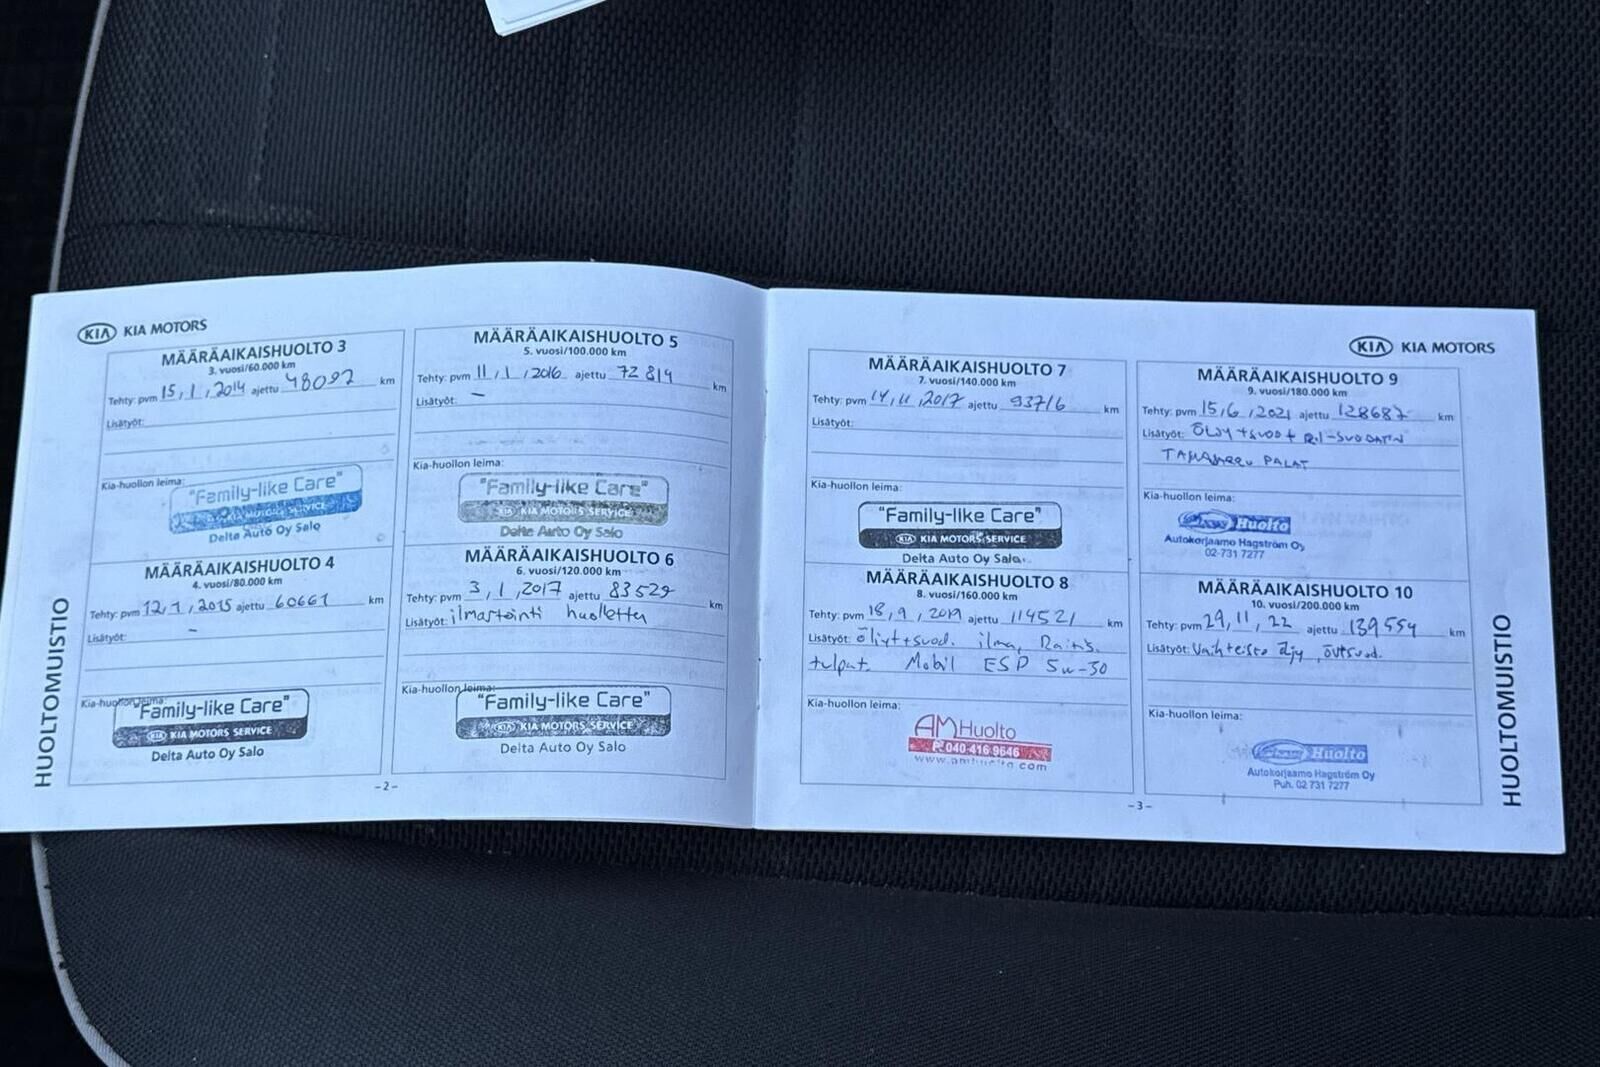 KIA KIA MOTORS
MÄÄRÄAIKAISHUOLTO 3
3. vuosi/60.000 km
Tehty: pvm 15,1,2014 ajettu 48092 km
Lisätyöt:
Kia-huollon leima:
"Family-like Care"
KIA MOTORS SERVICE
Delta Auto Oy Salo
MÄÄRÄAIKAISHUOLTO 4
4. vuosi/80.000 km
Tehty: pvm 12,1,2015 ajettu 60661 km
Lisätyöt: –
Kia-huollon leima:
"Family-like Care"
KIA KIA MOTORS SERVICE
Delta Auto Oy Salo
MÄÄRÄAIKAISHUOLTO 5
5. vuosi/100.000 km
Tehty: pvm 11,1,2016 ajettu 72814 km
Lisätyöt: –
Kia-huollon leima:
"Family-like Care"
KIA KIA MOTORS SERVICE
Delta Auto Oy Salo
MÄÄRÄAIKAISHUOLTO 6
6. vuosi/120.000 km
Tehty: pvm 3,1,2017 ajettu 83529 km
Lisätyöt: ilmastointi huollettu
Kia-huollon leima:
"Family-like Care"
KIA KIA MOTORS SERVICE
Delta Auto Oy Salo
HUOLTOMUISTIO
-2-
KIA KIA MOTORS
MÄÄRÄAIKAISHUOLTO 7
7. vuosi/140.000 km
Tehty: pvm 14,11,2017 ajettu 93716 km
Lisätyöt:
Kia-huollon leima:
"Family-like Care"
KIA KIA MOTORS SERVICE
Delta Auto Oy Salo
MÄÄRÄAIKAISHUOLTO 8
8. vuosi/160.000 km
Tehty: pvm 18,9,2019 ajettu 114521 km
Lisätyöt: öljyt+suod. ilma, Raitis.
tulpat. Mobil ESP 5w-30
Kia-huollon leima:
AM Huolto
P. 040 416 9646
www.amhuolto.com
MÄÄRÄAIKAISHUOLTO 9
9. vuosi/180.000 km
Tehty: pvm 15,6,2021 ajettu 128687 km
Lisätyöt: ÖLJY+SUOD+ R.I-SUODATIN
PALAT
Kia-huollon leima:
Huolto
Autokorjaamo Hagström Oy
02-731 7277
MÄÄRÄAIKAISHUOLTO 10
10. vuosi/200.000 km
Tehty: pvm 29,11,22 ajettu 139554 km
Lisätyöt: Vaihteisto öljy,
Kia-huollon leima:
Huolto
Autokorjaamo Hagström Oy
Puh. 02 731 7277
HUOLTOMUISTIO
-3-